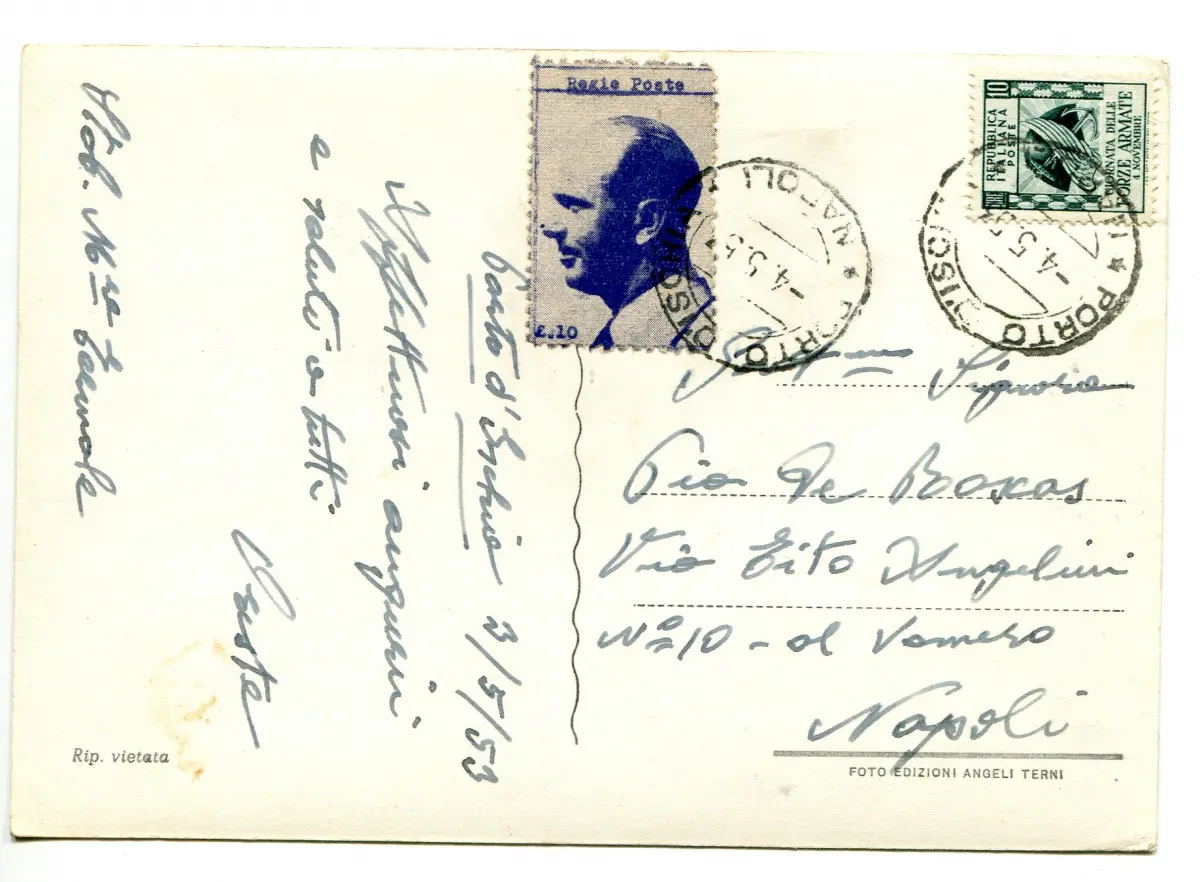 Regie Poste
£.10
REPUBBLICA
ITALIANA
POSTE
10
LIRE
GIORNATA DELLE
FORZE ARMATE
4 NOVEMBRE
PORTO D'ISCHIA * NAPOLI *
-4.5.5
PORTO D'ISCHIA
-4.5.53
Porto d'Ischia 3/5/53
Affettuosi auguri
e saluti a tutti
Signora
Pia De Boxas
Via Tito Angelini
Nº 10 - al Vomero
Napoli
Rip. vietata
FOTO EDIZIONI ANGELI TERNI